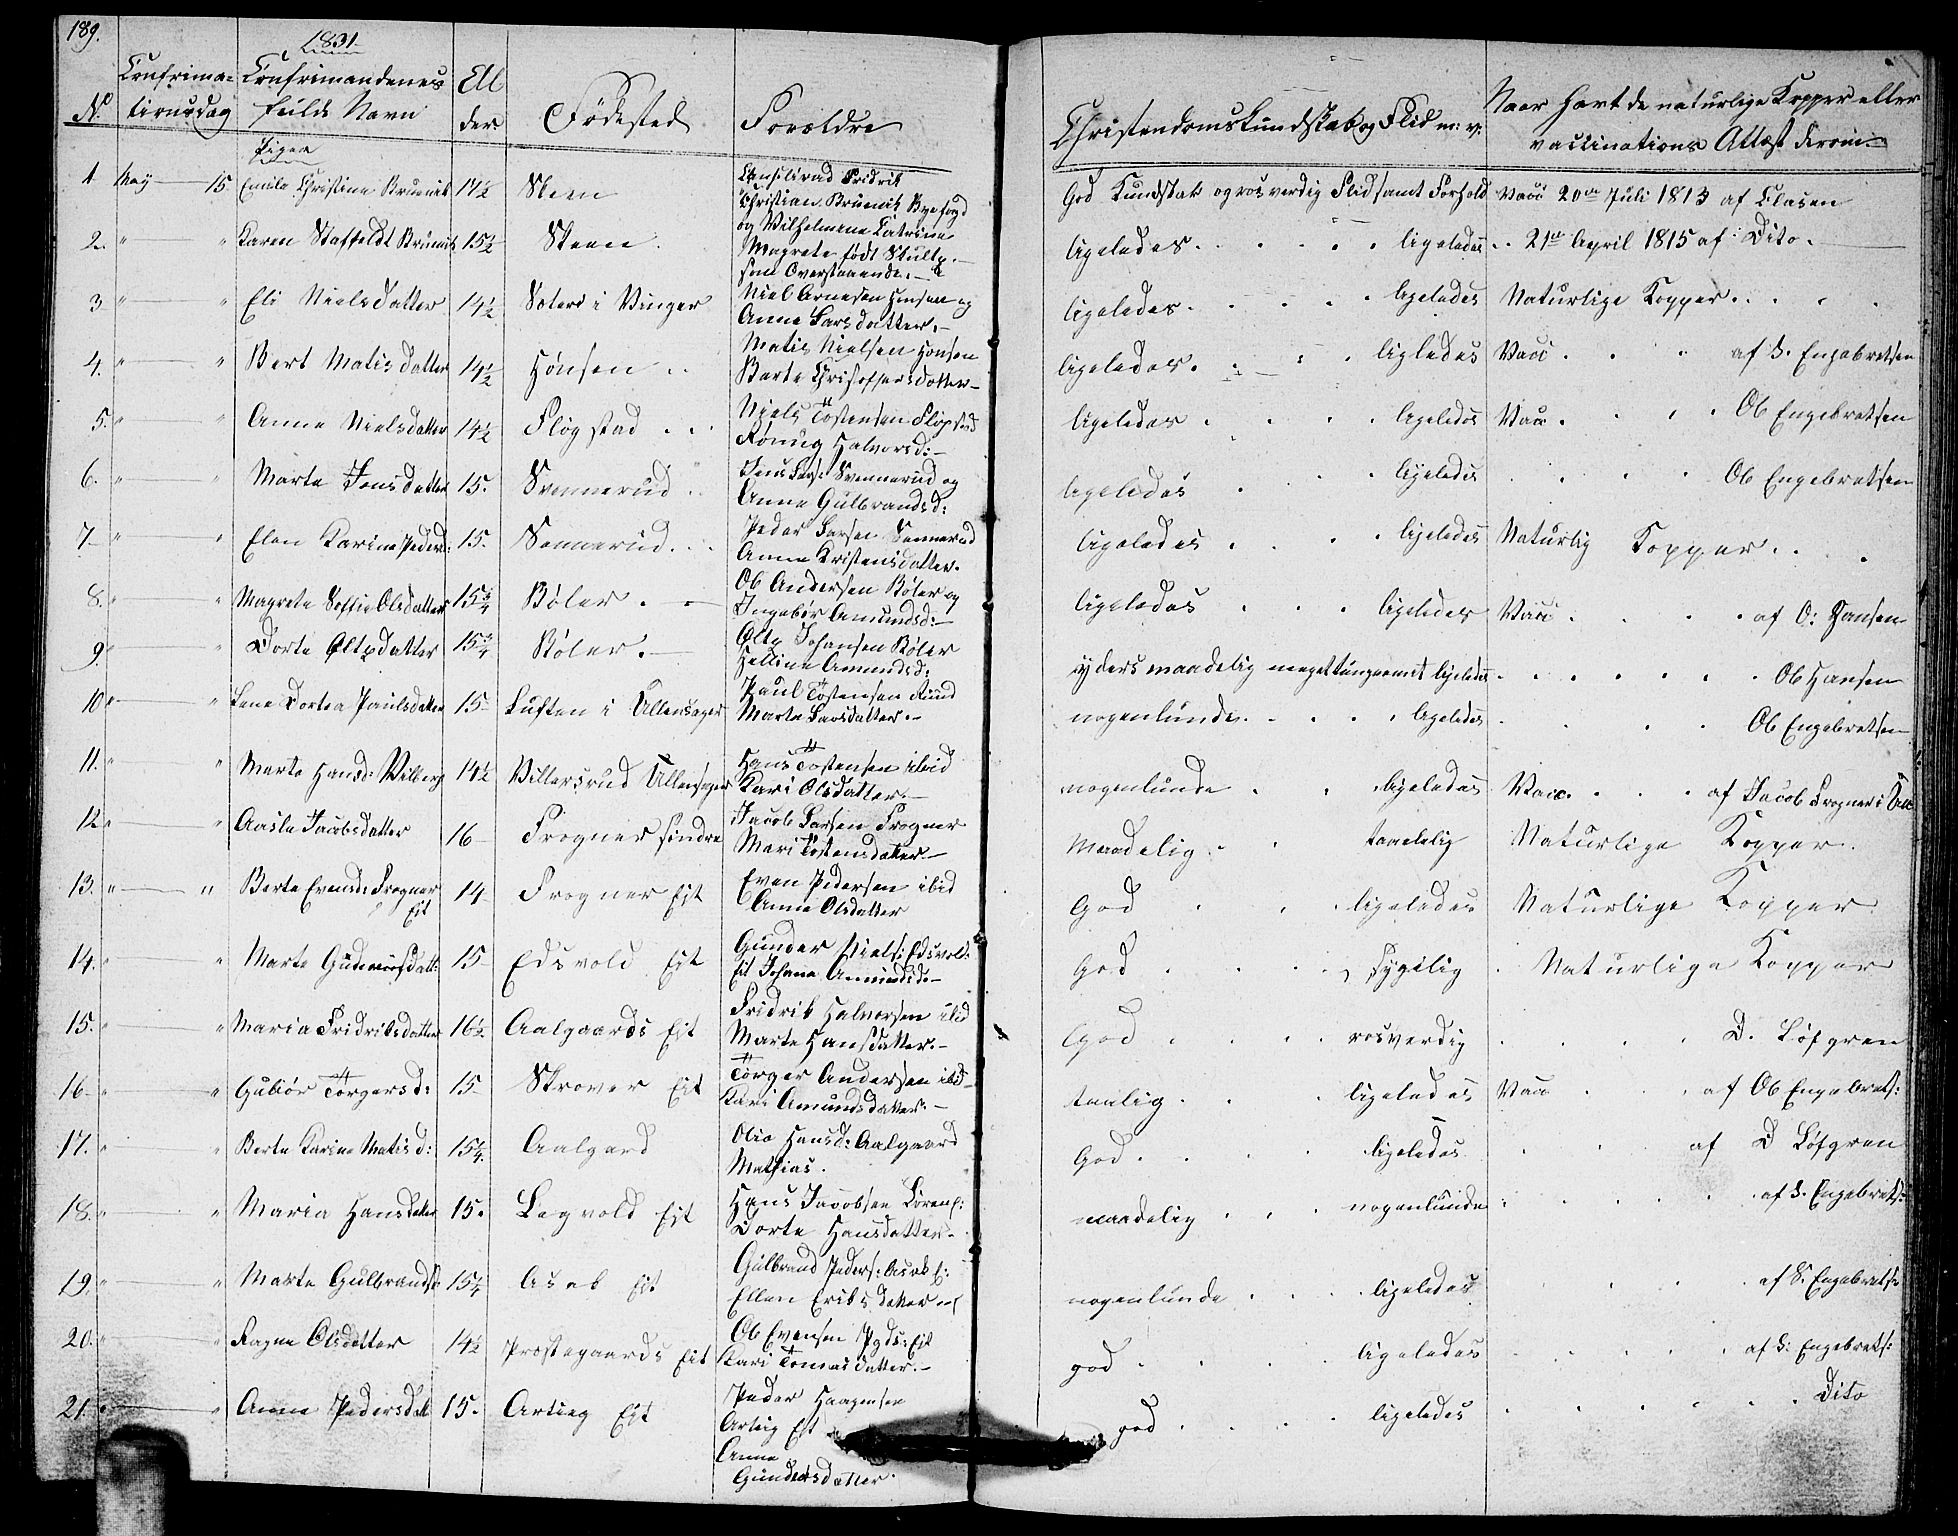 189.
1831.
No. Confirmationsdag Confirmandenes fulde Navn Alder Fødested Forældre Christendomskundskab og Flid m: v: Naar havt de naturlige Kopper eller vaccinations Attest derom
Piger
1 May 15 Emilie Christine 17½ Skeen Fridrik Christian Byefogd og Wilhelmine Catrine Magrete født God Kundskab og rosverdig Flid samt Forhold Vacc 20de Juli 1813 af Clasen
2. " " Karen Staffeldt 15½ Skeen. som Overstaaende. ligeledes. ligeledes 21de April 1815 af Dito.
3 " " Eli Nielsdatter 14½ i Vinger Niel Arnesen og Anne Larsdatter. ligeledes. ligeledes Naturlige Kopper.
4. " " Bert Matisdatter 14½ Hønsen Matis Nielsen Honsen Berte ligeledes. ligledes Vacc af S. Engebretsen
5. " " Anne Nielsdatter 14½ Fløgstad Niels Tostensen Rønnug Halvorsd: ligeledes ligeledes Vacc. Ole Engebretsen
6. " " Marte Jensdatter 15. Svennerud Jens Lars: Svennerud og Anne Gulbrandsd: ligeledes ligeledes Ole Engebretsen
7 " " Elen Karine Pedersd: 15. Sennerud Peder Larsen Sennerud Anne Kristensdatter. ligeledes ligeledes Naturlig Kopper.
8. " " Magrete Soffie Olsdatter 15¾ Bøler. Ole Andersen Bøler og Ingebør Amundsd: ligeledes ligeledes Vacc af O: Hansen
9. " " Dorte 15¾ Bøler. Johansen Bøler Helline Amundsd: yders maadelig meget tungnemt ligeledes Ole Hansen
10 " " Lene Dortea Paulsdatter 15 Luften i Ullensager Paul Tostensen Ruud Marte Larsdatter. nogenlunde. ligeledes Ole Engebretsen
11. " " Marte Hansd: 14½ Villersrud Ullensager Hans Tostensen ibid Kari Olsdatter. nogenlunde ligeledes Vacc. af Jacob Frogner i
12 " " Aasle Jacobsdatter 16 Frogner Jacob Larsen Frogner Mari Tostensdatter. maadelig taalelig Naturlige Kopper.
13. " " Berte Evensd: Frogner Eit 14 Frogner Eit Even Pedersen ibid Anne Olsdatter God ligeledes Naturlige Kopper
14. " " Marte 15 Edsvold Eit Gunder Niels: Edsvold Eit Johana Amundsd. God sygelig Naturlige Kopper
15. " " Maria Fridriksdatter 16½ Aalgaards Eit Fridrik Halvorsen ibid Marte Hansdatter. God rosverdig D. Løfgren
16 " " Gubiør Torgersd: 15 Skrover Eit Torger Andersen ibid Kari Amundsdatter. taalig ligeledes Vacc af Ole Engebrets:
17. " " Berte Karine Matisd: 15¼ Aalgard Olia Hansd: Aalgaard Mathias. God. ligeledes af D Løfgren
18. " " Maria Hansdatter 15. Lagvold Eit Hans Jacobsen Dorte Hansdatter. maadelig nogenlunde af S. Engebrets:
19. " " Marte Gulbrands 15¼ Asak Eit Gulbrand Peders: Asak E: Ellen Eriksdatter nogenlunde ligeledes af S. Engebretse
20. " " Ragne Olsdatter 14½ Prestegaards Eit Ole Evensen Pgds: Eit Kari Tomasdatter. god ligeledes af S: Engebrets:
21. " " Anne Pedersdatt 15. Arteig Eit Peder Haagensen Arteig Eit Anne Gundersdatter. god ligeledes Dito